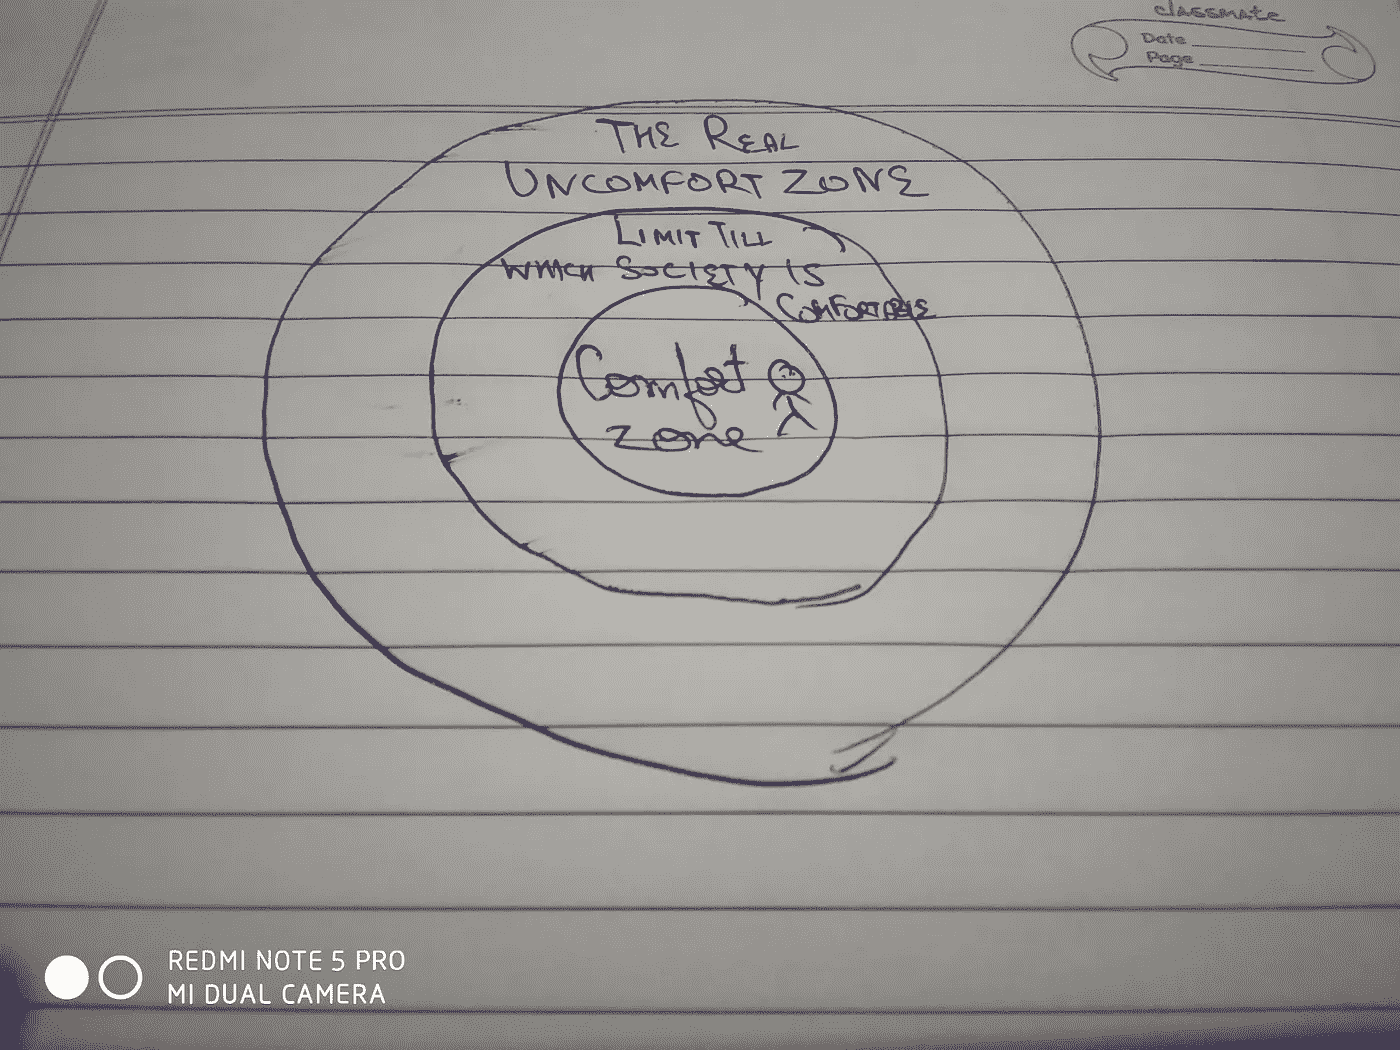 classmate
Date
Page
THE REAL
UNCOMFORT ZONE
LIMIT TILL
WHICH SOCIETY IS
COMFORTABLE
Comfort
zone
REDMI NOTE 5 PRO
MI DUAL CAMERA